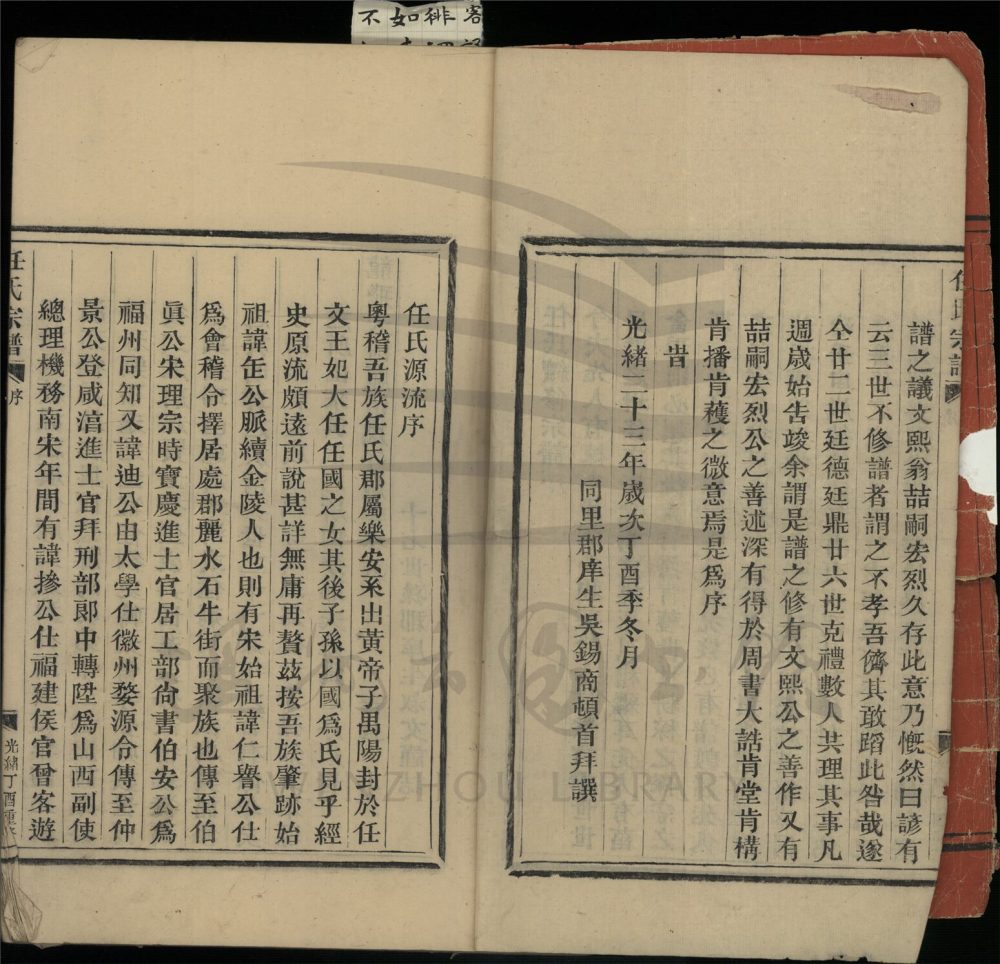 譜之議文熙翁喆嗣宏烈久存此意乃慨然曰諺有
云三世不修譜者謂之不孝吾儕其敢蹈此咎哉遂
仝廿二世廷德廷鼎廿六世克禮數人共理其事凡
週歲始告竣余謂是譜之修有文熙公之善作又有
喆嗣宏烈公之善述深有得於周書大誥肯堂肯構
肯播肯穫之微意焉是爲序
旹
光緒二十三年歲次丁酉季冬月
同里郡庠生吳錫商頓首拜譔
任氏源流序
粵稽吾族任氏郡屬樂安系出黃帝子禺陽封於任
文王妃大任任國之女其後子孫以國爲氏見乎經
史原流頗遠前說甚詳無庸再贅茲按吾族肇跡始
祖諱缶公脈續金陵人也則有宋始祖諱仁譽公仕
爲會稽令擇居處郡麗水石牛街而聚族也傳至伯
眞公宋理宗時寶慶進士官居工部尙書伯安公爲
福州同知又諱迪公由太學仕徽州婺源令傳至仲
景公登咸淳進士官拜刑部郞中轉陞爲山西副使
總理機務南宋年間有諱摻公仕福建侯官曾客遊
任氏宗譜
序
光緒丁酉重修
任氏宗譜
客
徘
如
不
WENZHOU LIBRARY